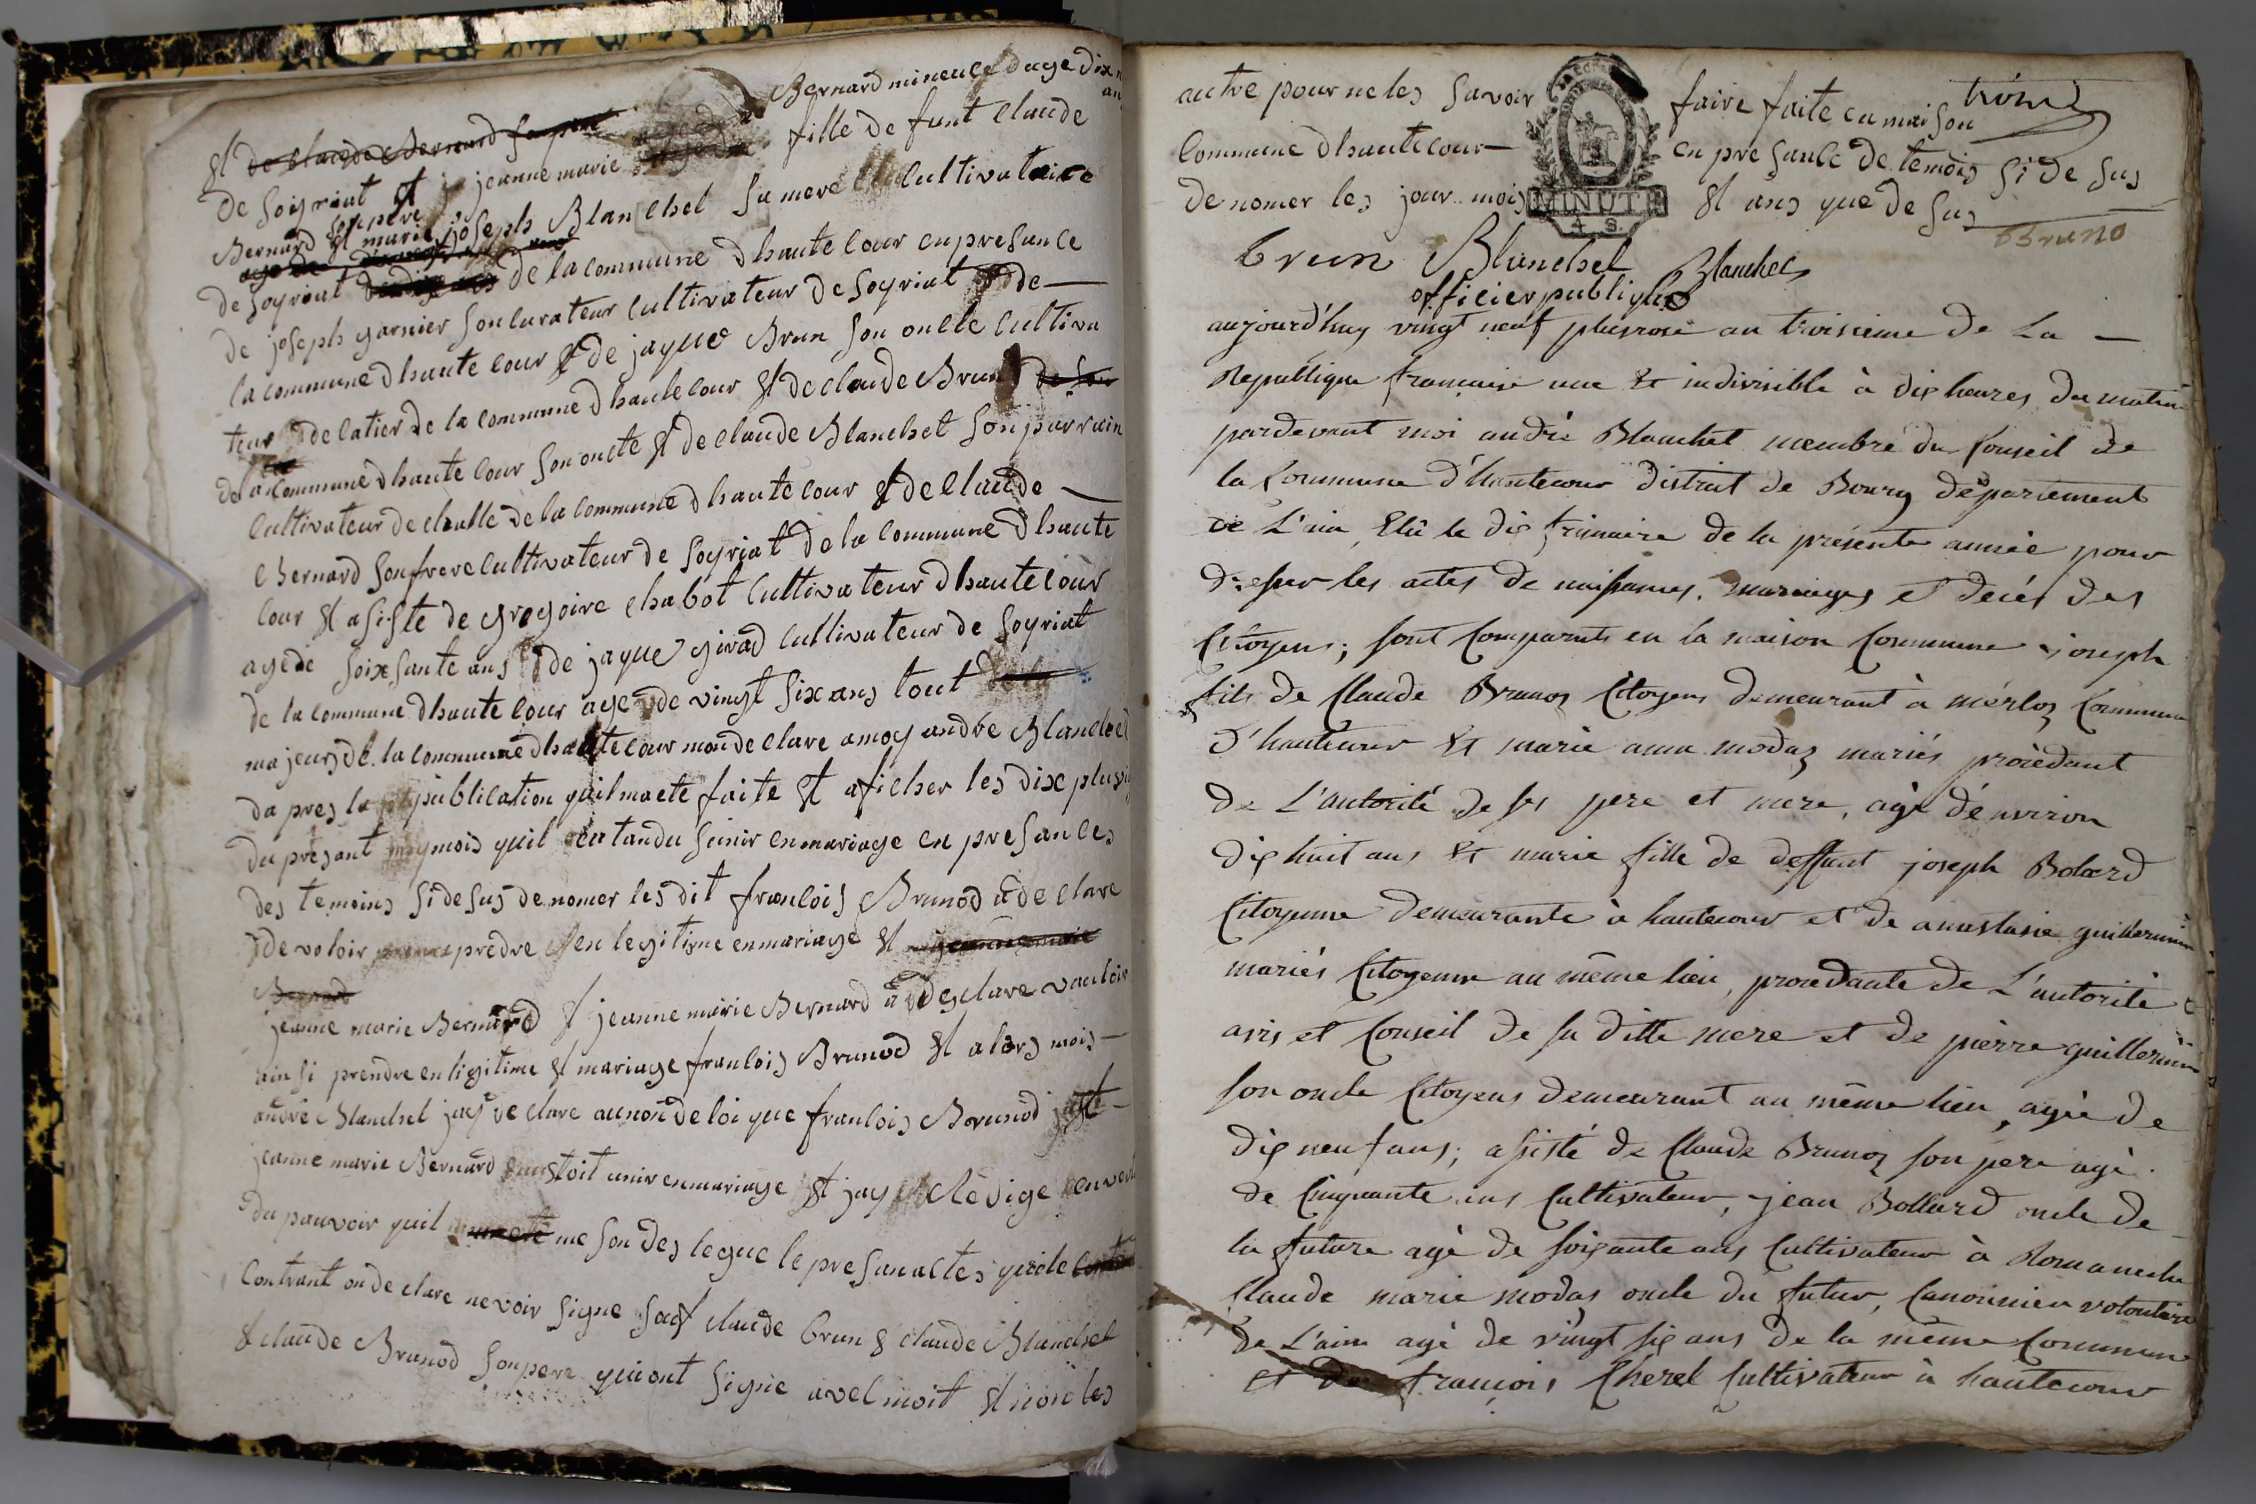 Bernard mineure dage dix
an
et de claude Bernard son pere
de soiriat et jeanne marie fille de funt claude
son pere
Bernard et marie joseph Blanchet sa mere cultivataire
de soyriat de la commune dhaute cour en presance
de joseph garnier son curateur cultivateur de soyriat de
la commune dhaute cour et de jaque Brun son oncle cultiva
teur de latier de la commune dhaute cour et de claude Brun
de la commune dhaute cour son oncle et de claude Blanchet son parrain
cultivateur de challe de la commune dhaute cour et de claude
Bernard son frere cultivateur de soyriat de la commune dhaute
cour et asisste de gregoire chabot cultivateur dhaute cour
age de soixsante ans de jaque girad cultivateur de soyriat
de la commune dhaute cour age de vingt six ans tout
majeurs de la commune dhaute cour mon declare a moy andre Blanchet
da pres la publication quil ma ete faite et aficher les dix pluvi
du presant mois quil entandu sunir en mariage en presances
des temoins si desus denomer les dit francois Brunod a declare
de voloir predre en legitime en mariage et jeanne marie
Bernard
jeanne marie Bernard et jeanne marie Bernard a desclare vouloir
ainsi prendre en ligitime et mariage francois Brunod et alors mois
andre Blanchet jay declare au nom de loi que francois Brunod
jeanne marie Bernard sunstoit unir en mariage et jay redige en vertu
du pouvoir quil me son deslegue le presan actes que le
contrant on declare ne voir signe sauf claude brun et claude Blanchet
et claude Brunod son pere qui ont signie avec moit et non les
autre pour ne les savoir faire faite en maison
commune dhaute cour en presance de temois si de sus
de nomer les jour mois et ans que de sus
MINUTE
4 S.
Bruno
brun Blanchet Blanchet
officier publique
aujourd'huy vingt neuf pluviose an troisieme de la
Republique francaise une et indivisible à dix heures du matin
pardevant moi andré Blanchet membre du Conseil de
la Commune d'hautecour district de Bourg département
de L'ain, Elû le dix frimaire de la présente année pour
dresser les actes de naissances, mariages et décés des
Citoyens; sont Comparuts en la maison Commune joseph
fils de Claude Brunoz Citoyens demeurant à mérloz Commune
d'hautecour et marie anne modaz mariés procèdant
de L'autorité de ses pere et mere, agé d'environ
dix huit ans et marie fille de deffunt joseph Bolard
Citoyenne demeurante à hautecour et de anastasie guillermin
mariés Citoyenne au même lieu, procedante de L'autorité
avis et Conseil de sa ditte mere et de pierre guillermin
son oncle Citoyens demeurant au même lieu, agée de
dix neuf ans; assisté de Claude Brunoz son pere agé
de Cinquante ans Cultivateur, jean Bollard oncle de
la future agé de soixante ans Cultivateur à Romaneche
Claude marie modas oncle du futur, Canonnier volontaire
de L'ain agé de vingt six ans de la même Commune
et de françois Cherel Cultivateur à hautecour